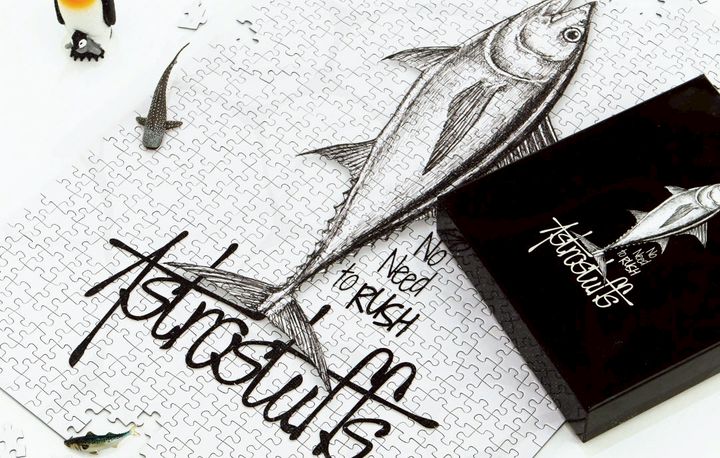 No
Need
to RUSH
Astrostuffs
No
Need
to RUSH
Astrostuffs